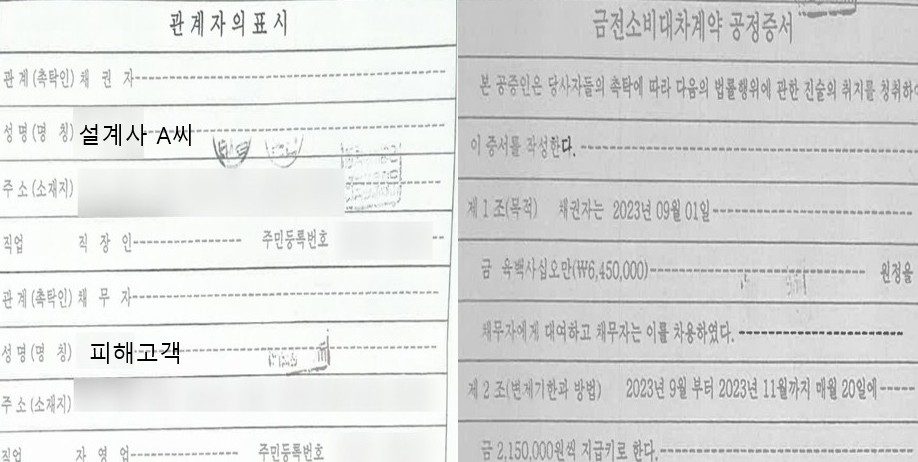 관계자의표시
관계(촉탁인) 채 권 자
성명(명 칭) 설계사 A씨
주소(소재지)
직업 직 장 인 주민등록번호
관계(촉탁인) 채 무 자
성명(명 칭) 피해고객
주소(소재지)
직업 자 영 업 주민등록번호
금전소비대차계약 공정증서
본 공증인은 당사자들의 촉탁에 따라 다음의 법률행위에 관한 진술의 취지를 청취하여
이 증서를 작성한다.
제 1 조(목적) 채권자는 2023년 09월 01일
금 육백사십오만(₩6,450,000) 원정을
채무자에게 대여하고 채무자는 이를 차용하였다.
제 2 조(변제기한과 방법) 2023년 9월 부터 2023년 11월까지 매월 20일에
금 2,150,000원씩 지급키로 한다.